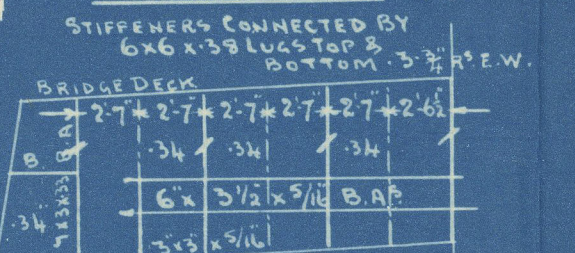 STIFFENERS CONNECTED BY
6x6x.38 LUGS TOP &
BOTTOM. 3-¾" RS. E.W.
BRIDGE DECK
2'-7" 2'-7" 2'-7" 2'-7" 2'-7" 2'-6½"
B. B.A .34 .34 .34
6" x 3½" x 5/16" B.A
.34" x3x.33
3"x3" x 5/16"